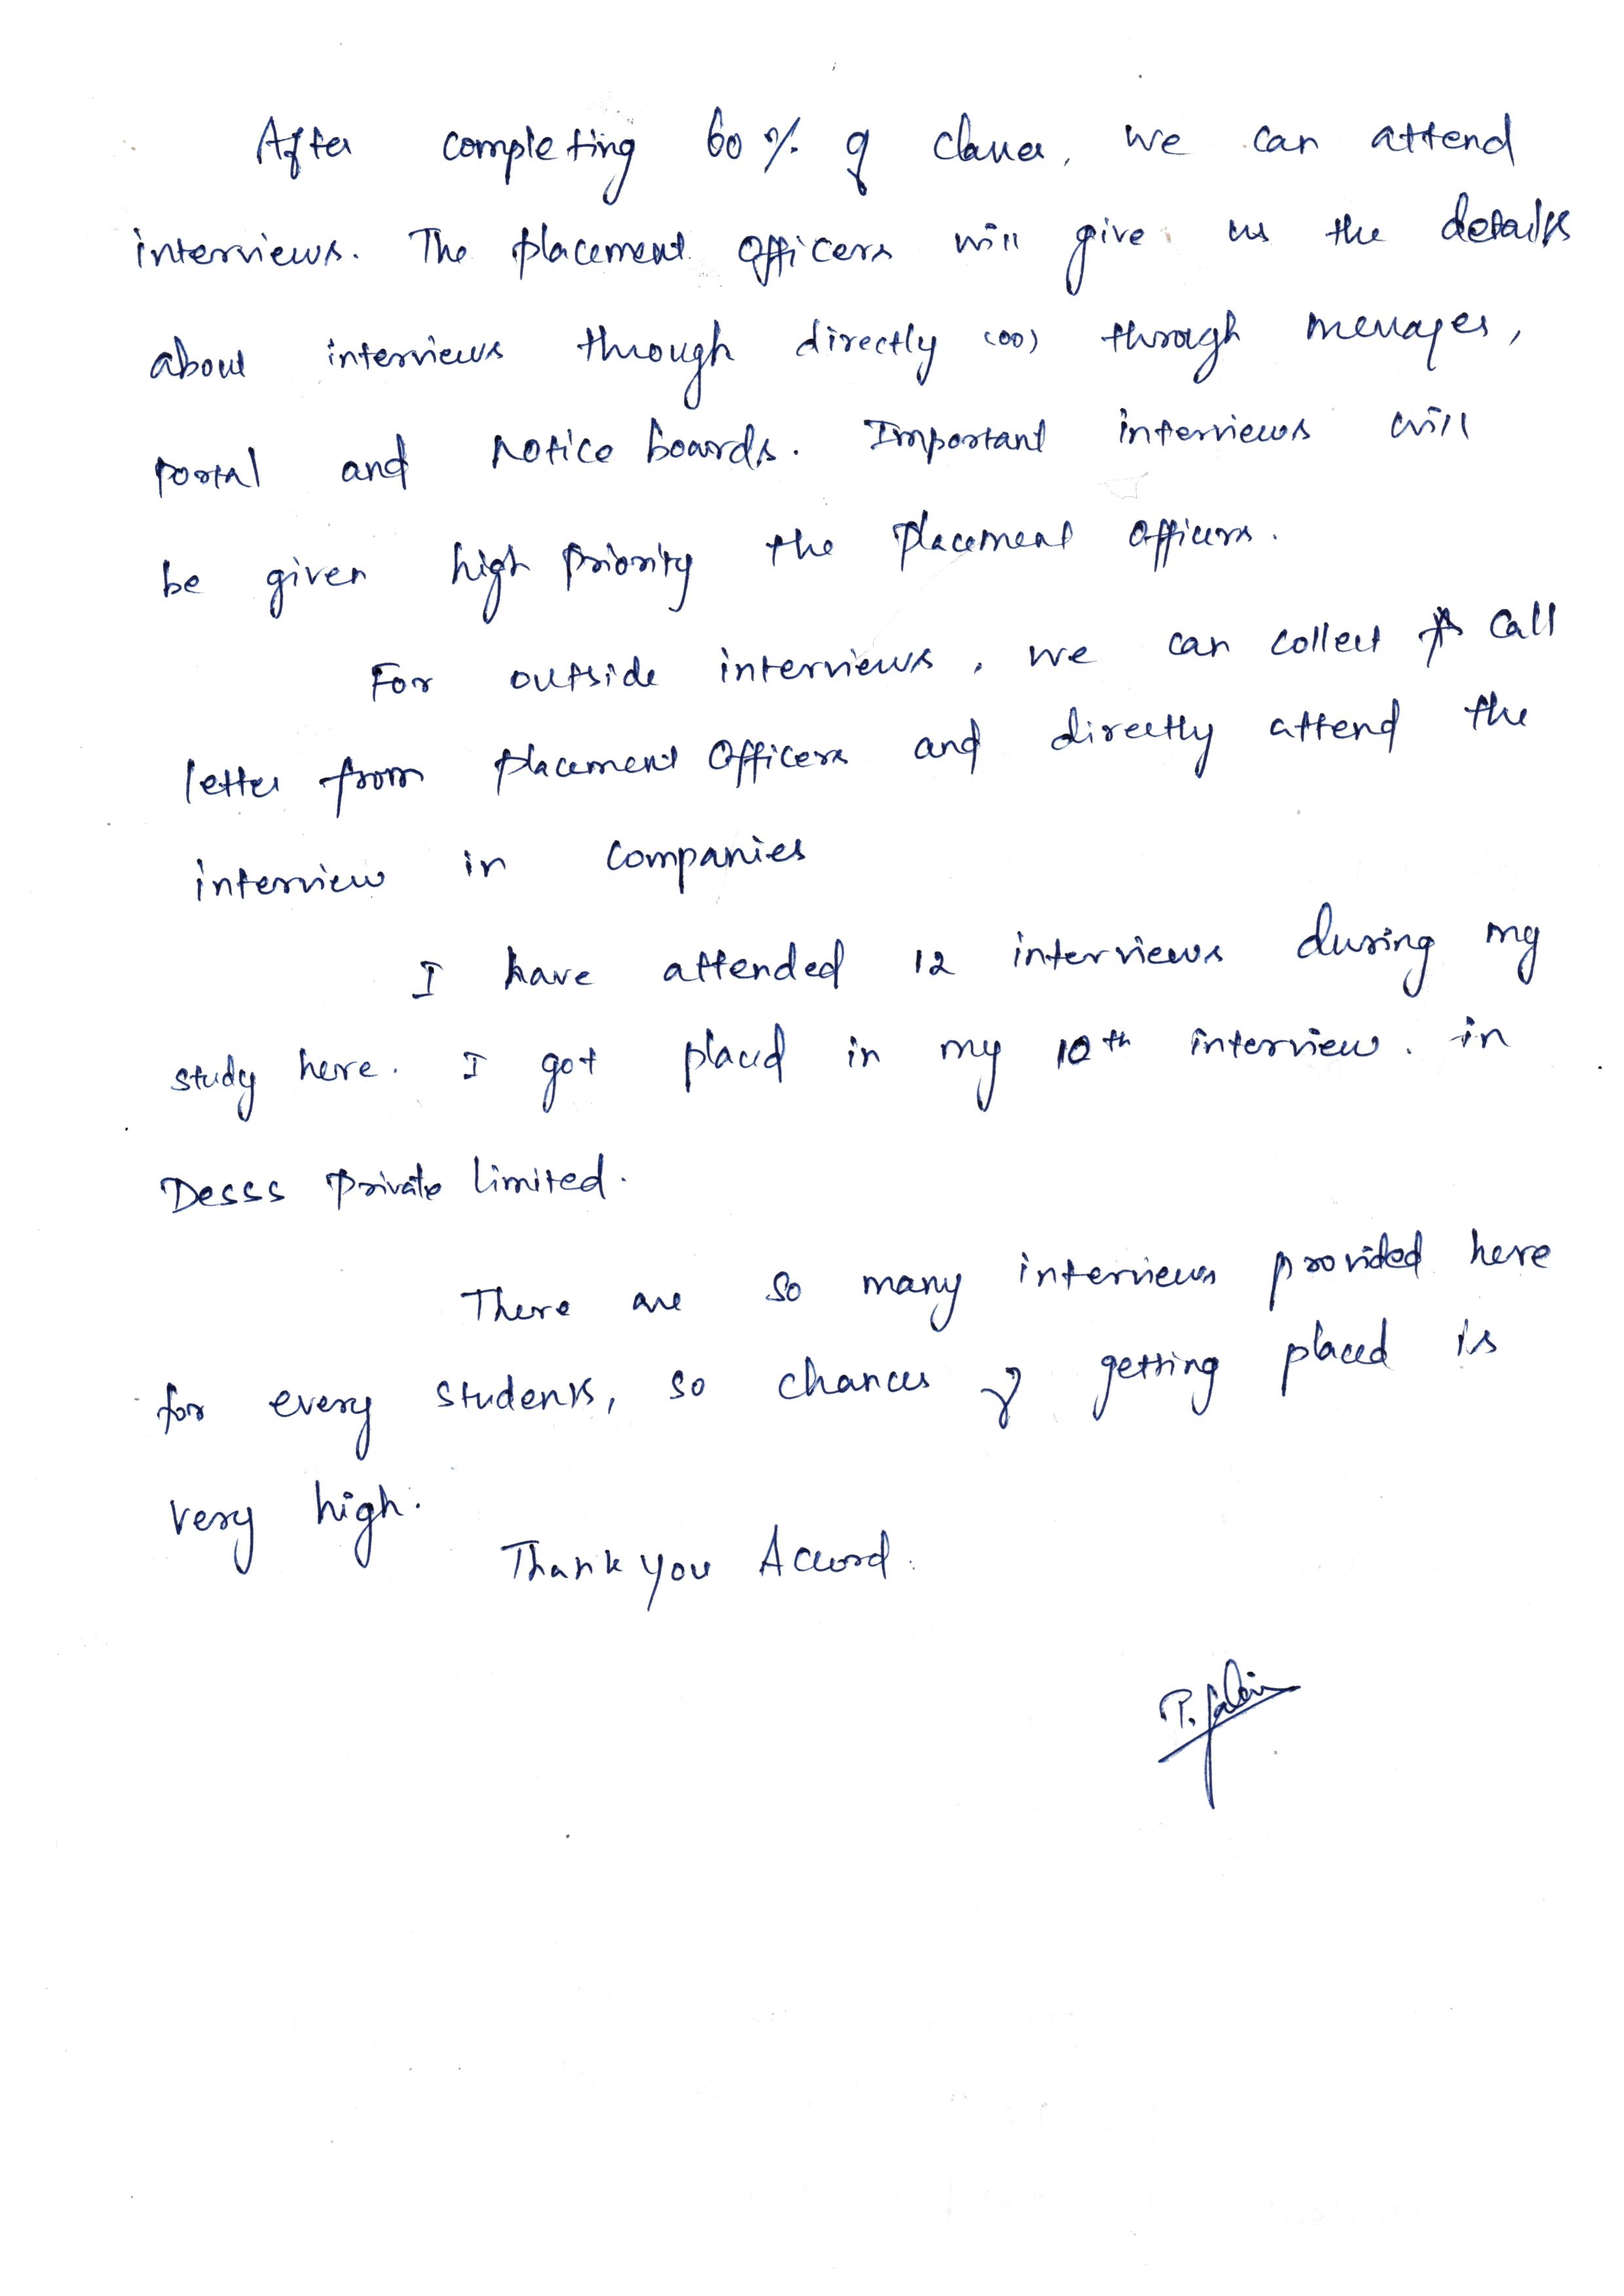 After completing 60% of classes, we can attend
interviews. The placement officers will give us the details
about interviews through directly (or) through messages,
portal and notice boards. Important interviews will
be given high priority the placement officers.
For outside interviews, we can collect call
letter from placement officers and directly attend the
interview in companies
I have attended 12 interviews during my
study here. I got placed in my 10th interview. in
Desss private limited.
There are so many interviews provided here
for every students, so chances of getting placed is
very high.
Thank you Accord.